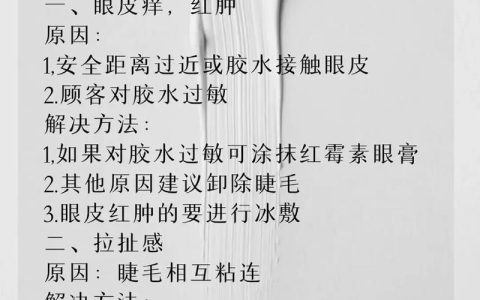 一、眼皮痒，红肿
原因：
1,安全距离过近或胶水接触眼皮
2.顾客对胶水过敏
解决方法：
1,如果对胶水过敏可涂抹红霉素眼膏
2.其他原因建议卸除睫毛
3.眼皮红肿的要进行冰敷
二、拉扯感
原因：睫毛相互粘连
解决方法：